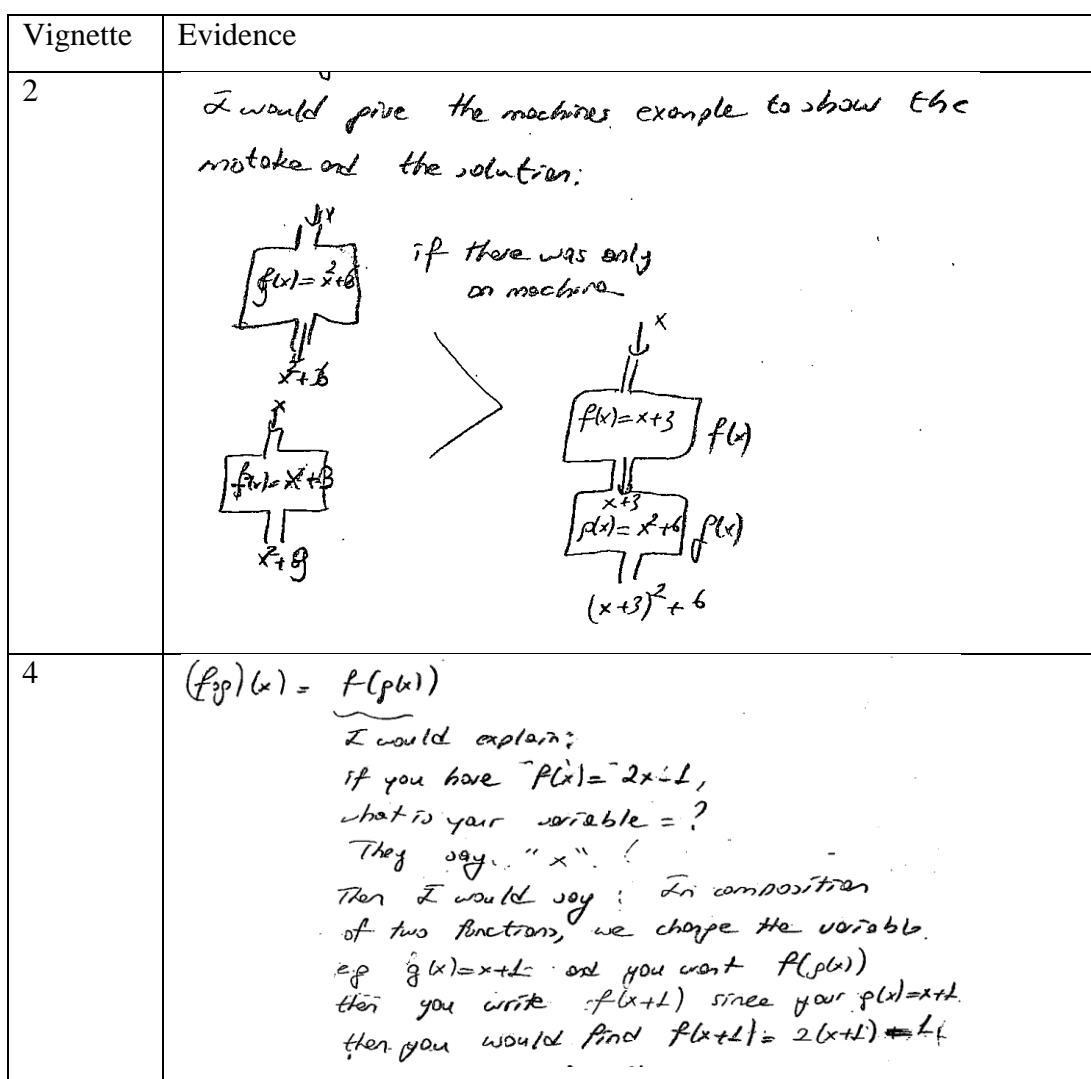 Vignette
Evidence
2
I would give the machines example to show the
mistake and the solution:
x
f(x)=x²+6
x²+6
if there was only
on machine
x
x
f(x)=x+3
f(x)
x+3
g(x)=x²+6
g(x)
(x+3)²+6
x²+9
4
(fog)(x) = f(g(x))
I would explain:
if you have f(x)=2x-1,
what is your variable = ?
They say.. "x".
Then I would say : In composition
of two functions, we change the variable.
e.g g(x)=x+1 and you want f(g(x))
then you write f(x+1) since your g(x)=x+1.
then you would find f(x+1)= 2(x+1)-1